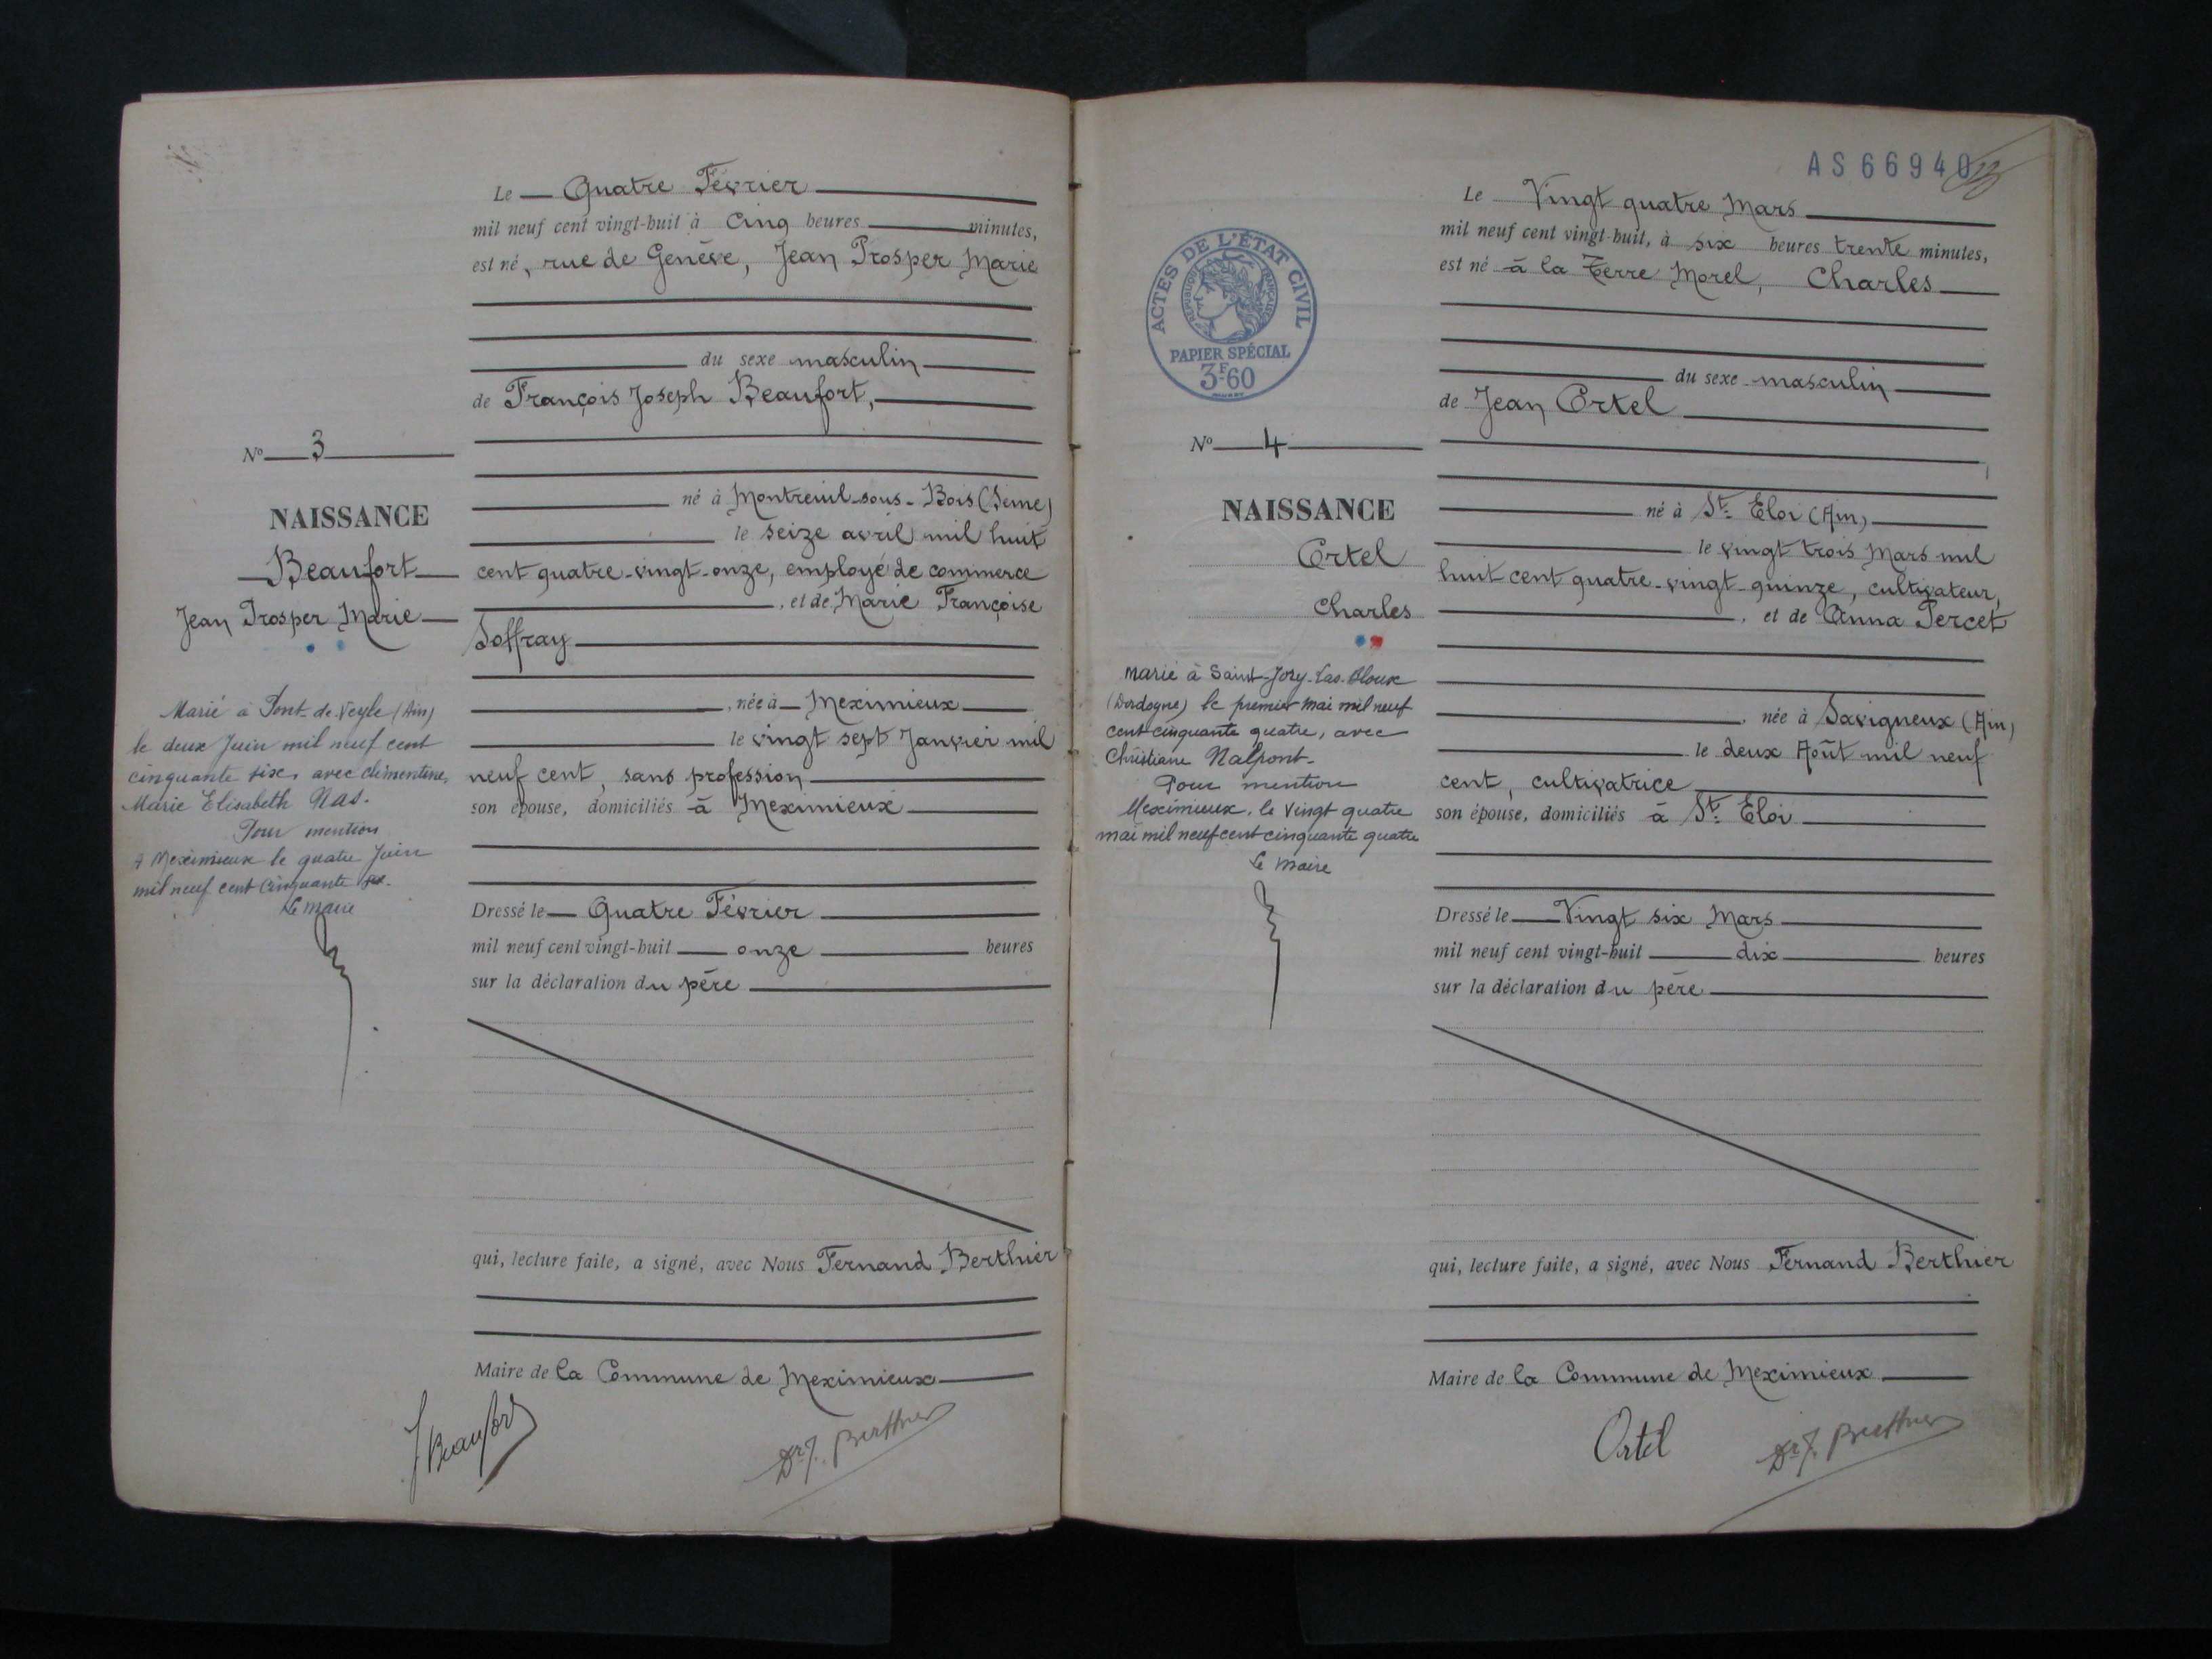 Le Quatre Février
mil neuf cent vingt-huit à Cinq heures minutes,
est né, rue de Genève, Jean Prosper Marie
du sexe masculin
de François Joseph Beaufort,
né à Montreuil-sous-Bois (Seine)
le seize avril mil huit
cent quatre-vingt-onze, employé de commerce
, et de Marie Françoise
Joffray
, née à Meximieux
le vingt sept Janvier mil
neuf cent, sans profession
son épouse, domiciliés à Meximieux
Dressé le Quatre Février
mil neuf cent vingt-huit onze heures
sur la déclaration du père
qui, lecture faite, a signé, avec Nous Fernand Berthier
Maire de la Commune de Meximieux
J Beaufort
Dr F. Berthier
No 3
NAISSANCE
Beaufort
Jean Prosper Marie
Marié à Pont-de-Veyle (Ain)
le deux Juin mil neuf cent
cinquante six, avec Clémentine,
Marie Elisabeth Nas.
Pour mention
A Meximieux le quatre Juin
mil neuf cent cinquante six.
Le maire
AS 66940
Le Vingt quatre Mars
mil neuf cent vingt-huit, à six heures trente minutes,
est né à la Terre Morel, Charles
du sexe masculin
de Jean Ortel
né à St. Eloi (Ain)
le vingt trois Mars mil
huit cent quatre-vingt-quinze, cultivateur,
, et de Anna Percet
, née à Savigneux (Ain)
le deux Août mil neuf
cent, cultivatrice
son épouse, domiciliés à St. Eloi
Dressé le Vingt six Mars
mil neuf cent vingt-huit dix heures
sur la déclaration du père
qui, lecture faite, a signé, avec Nous Fernand Berthier
Maire de la Commune de Meximieux
Ortel
Dr F. Berthier
ACTES DE L'ÉTAT CIVIL
RÉPUBLIQUE FRANÇAISE
PAPIER SPÉCIAL
3F60
No 4
NAISSANCE
Ortel
Charles
Marié à Saint-Jory-Las-Bloux
(Dordogne) le premier mai mil neuf
cent cinquante quatre, avec
Christiane Nalpont-
Pour mention
Meximieux, le vingt quatre
mai mil neuf cent cinquante quatre
Le Maire